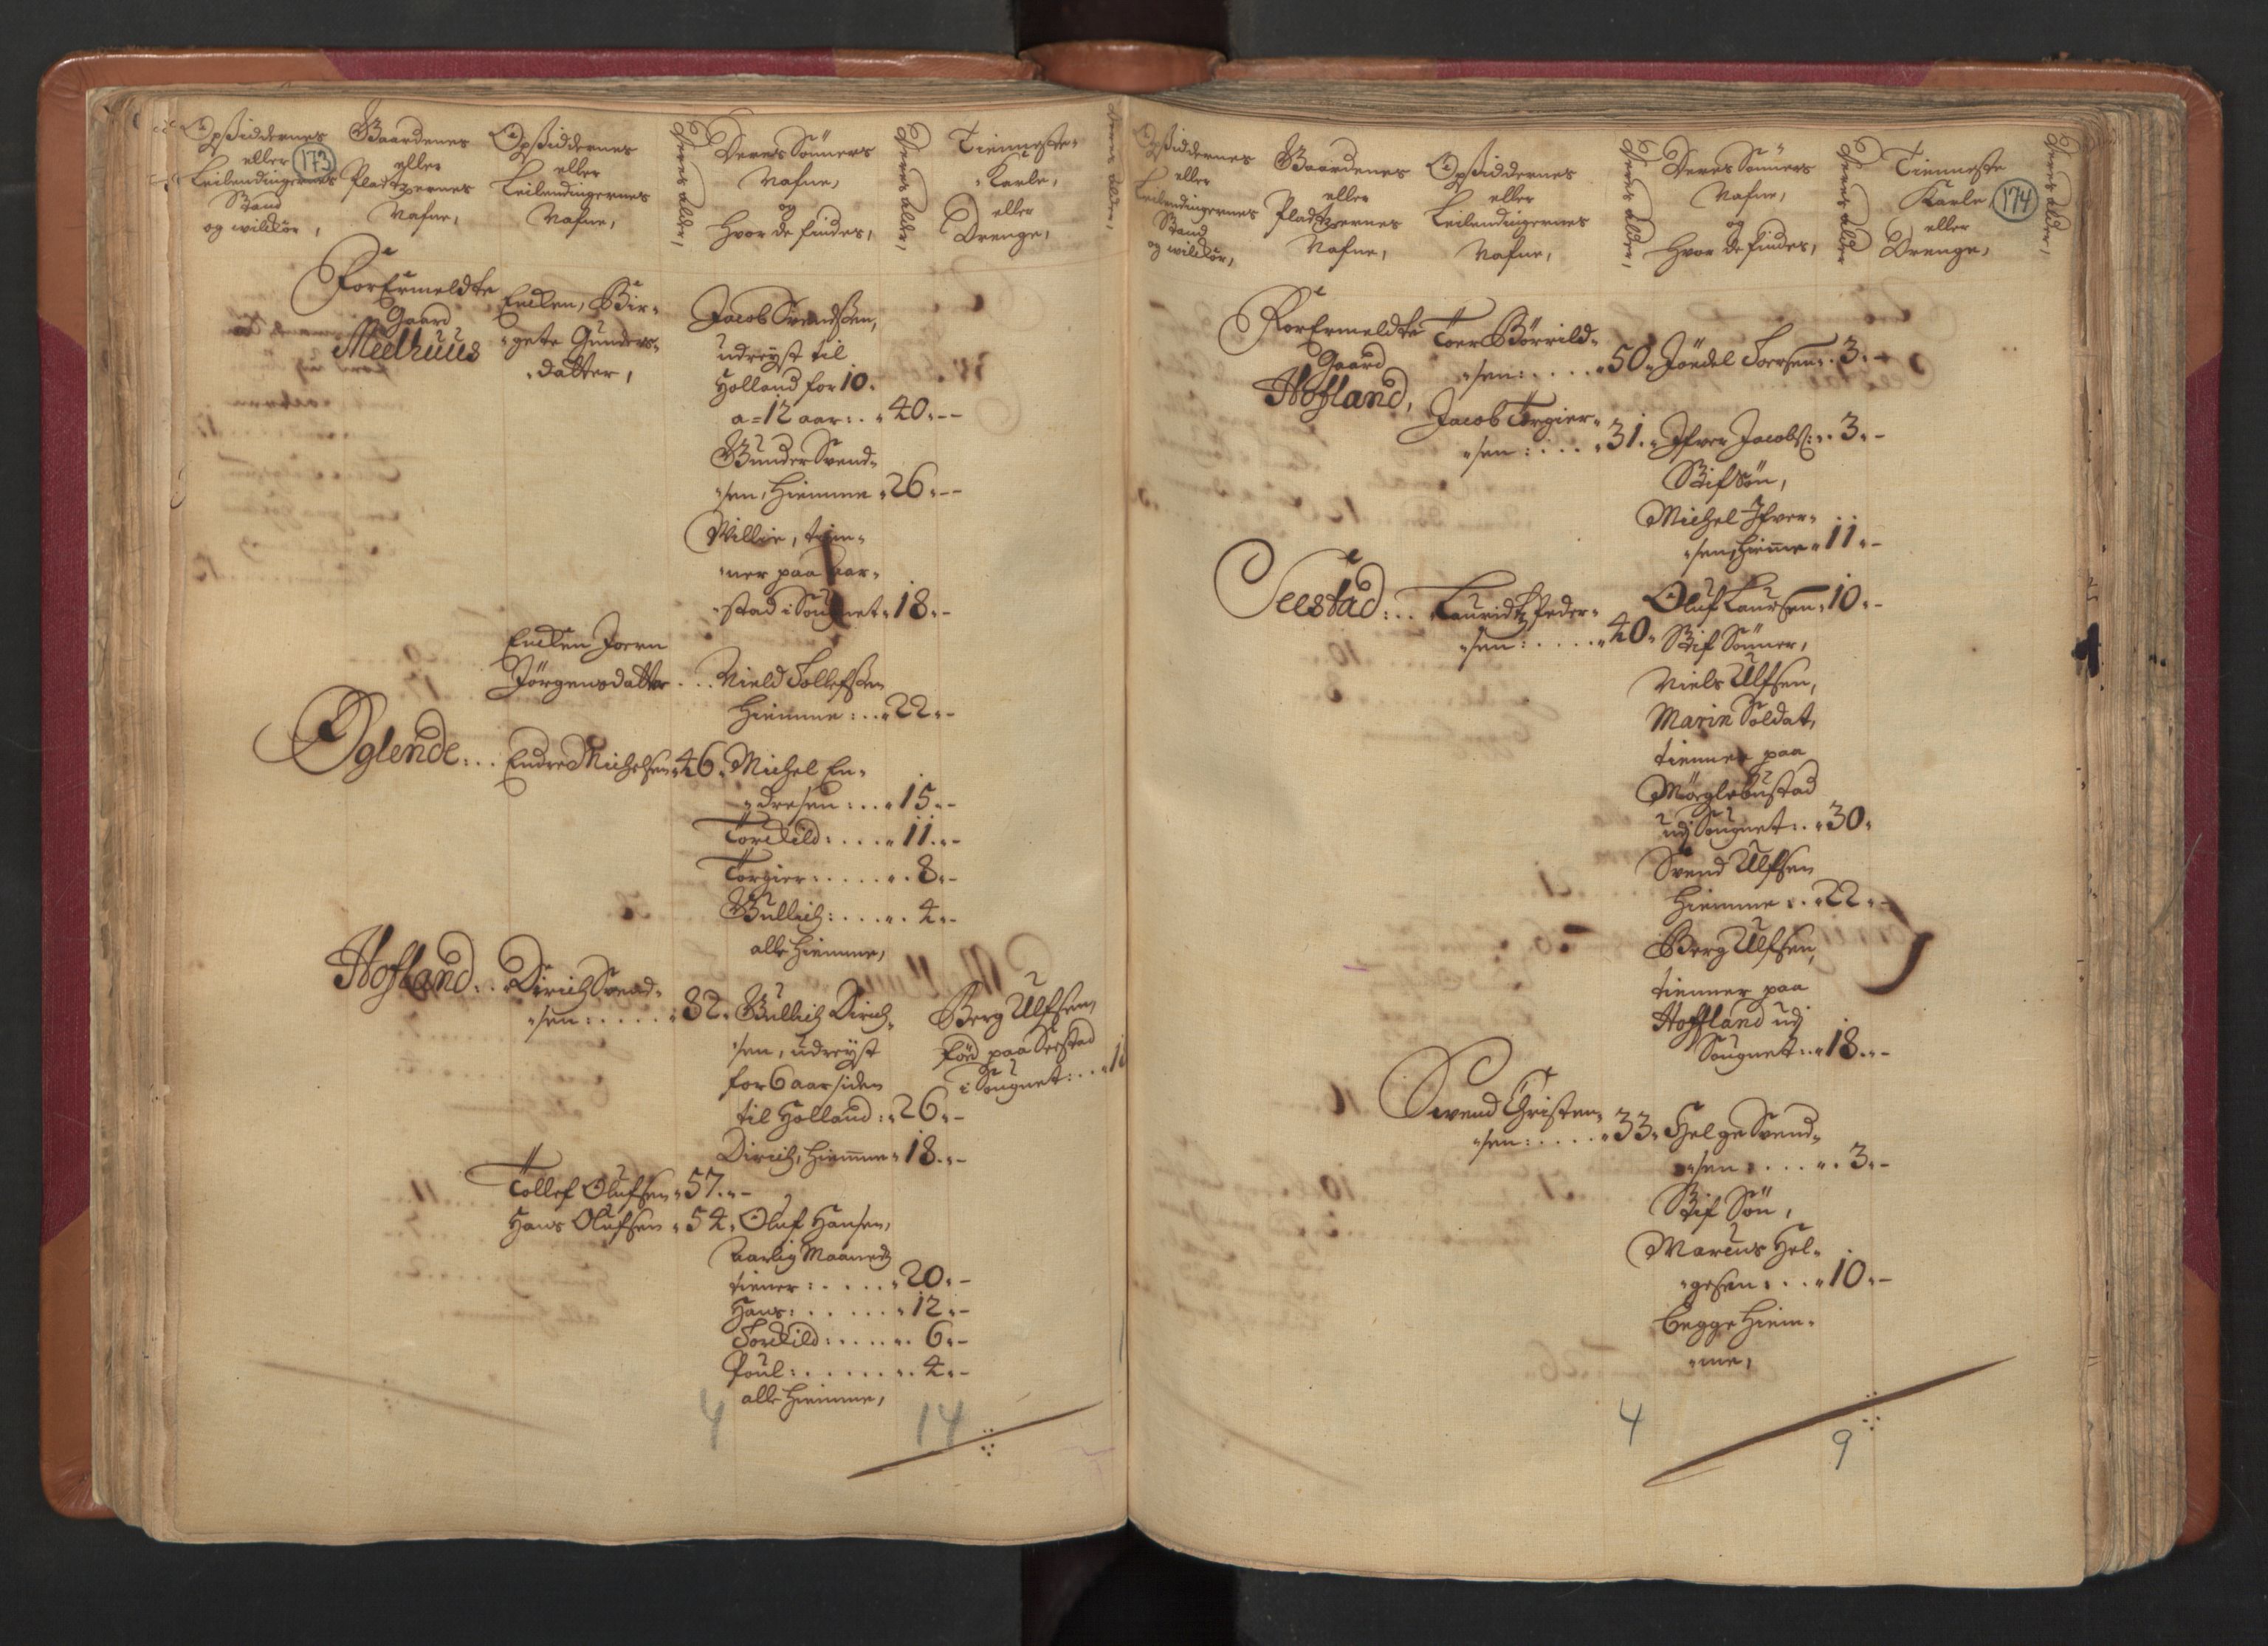 Opsiddernes
eller
Leilendingernes
Stand
og wilckor,
173
Gaardenes
eller
Pladtzernes
Nafne,
Opsiddernes
eller
Leilendingernes
Nafne,
Deres alder,
Deres Sönners
Nafne,
og
hvor de findes,
Deres alder,
Tienneste-
Karle,
eller
Drenge,
Deres alder,
Forermeldte
Gaard
Meelhuus
Encken, Bir-
gete Gunders-
datter,
Jacob Svendsen,
udreyst til
Holland for 10.
a=12 aar: . 40.--
Gunder Svend-
sen, hiemme 26.--
Willir, tien-
ner paa Aar-
stad i Sougnet. 18.-
Encken Joren
Jörgensdatter . . . Nield Tollefsen
hiemme: . . 22.-
Oglende: . . Endre Michelsen 46. Michel En-
dresen: . . 15.-
Torckild: . . . . 11.-
Torgier: . . . . . 8.-
Gullich: . . . . 4.-
alle hiemme,
Hofland: . . Dirich Svend-
sen: . . . . . 82. Gullich Dirich-
sen, udreyst
for 6 aar siden
til Holland: 26.-
Dirich, hiemme 18.-
Berg Ulfsen
föd paa Seestad
i Sougnet: . . 1
Tollef Olufsen 57.-
Hans Olufsen 54. Oluf Hansen,
aarlig Maaneds
tiener: . . . . 20.-
Hans: . . . . . 12.-
Torckild: . . . . 6.-
Poul: . . . . . . 4.-
alle hiemme,
4
14
Opsiddernes
eller
Leilendingernes
Stand
og wilckor,
Gaardenes
eller
Pladtzernes
Nafne,
Opsiddernes
eller
Leilendingernes
Nafne,
Deres alder,
Deres Sönners
Nafne,
og
hvor de findes,
Deres alder
Tienneste
Karle
eller
Drenge,
174
Deres alder,
Forermeldte
Gaard
Hofland,
Toer Börrild-
sen: . . . . 50. Joedel Toersen. 3.-
Jacob Torgier-
sen: . . . . 31. Ifver Jacobs: . 3.-
Stifsön,
Michel Ifver-
sen, hiemme 11.-
Seestad: . . Lauridtz Peder-
sen: . . . . . 40.
Oluf Laursen 10.-
Stif Sönner,
Niels Ulfsen,
Marin Soldat,
tienner paa
Möglebustad
udj Sougnet: . 30.
Svend Ulfsen
hiemme . . 22.-
Berg Ulfsen,
tienner paa
Hoffland udj
Sougnet: . 18.-
Svend Christen-
sen: . . . . . 33. Helge Svend-
sen . . . . . 3.-
Stif Sön,
Marcus Hel-
gesen: . . . 10.-
begge hiem-
me,
4
9